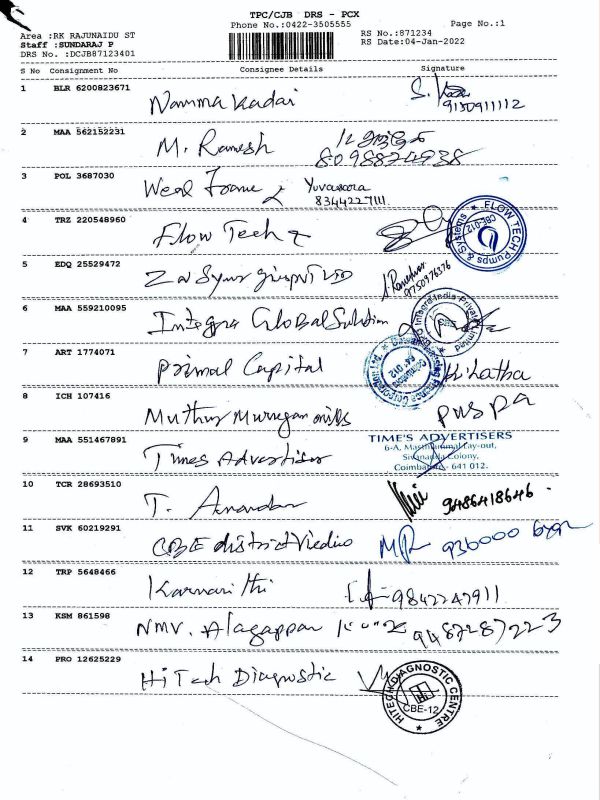 TPC/CJB DRS - PCX
Phone No.:0422-3505555
Page No.:1
Area :RK RAJUNAIDU ST
RS No.:871234
Staff :SUNDARAJ P
RS Date:04-Jan-2022
DRS No. :DCJB87123401
S No Consignment No Consignee Details Signature
1 BLR 6200823671
Namma Kadai
9150911112
2 MAA 562152231
M. Ramesh
8098824938
3 POL 3687030
Yuvaraora
8344227111
4 TRZ 220548960
Flow Tech
FLOW TECH Pumps & Systems CBE-012
5 EDQ 25529472
9750976376
6 MAA 559210095
Integra Global Solution
Integra India Private Limited
7 ART 1774071
Primal Capital
Latha
8 ICH 107416
Muthur Murugan mills
puspa
9 MAA 551467891
Times Advertiser
TIME'S ADVERTISERS
6-A, Lay-out,
Colony,
641 012.
10 TCR 28693510
T. Anandan
9486418646
11 SVK 60219291
CBE district
936000
12 TRP 5648466
9842247911
13 KSM 861598
NMV. Alagappan
9487287223
14 PRO 12625229
HiTech Diagnostic
HITECH DIAGNOSTIC CENTRE
CBE-12